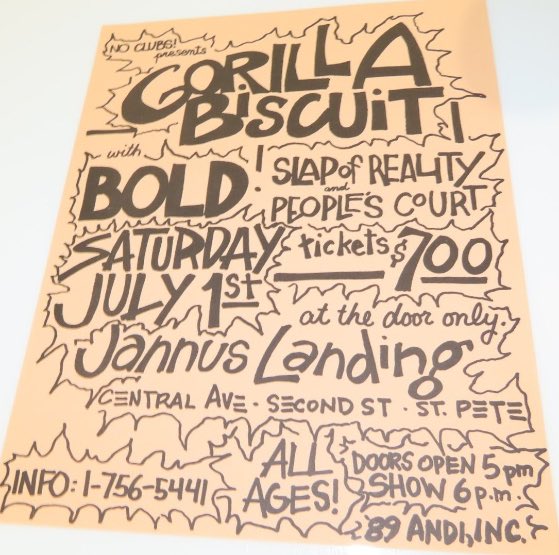 NO CLUBS!
presents
GORILLA
BISCUIT!
with
BOLD! SLAP of REALITY
and
PEOPLE'S COURT
SATURDAY tickets $7.00
JULY 1st
at the door only.
Jannus Landing
CENTRAL AVE · SECOND ST · ST. PETE
INFO: 1-756-5441
ALL
AGES!
DOORS OPEN 5 pm
SHOW 6 p.m.
'89 ANDI, INC.